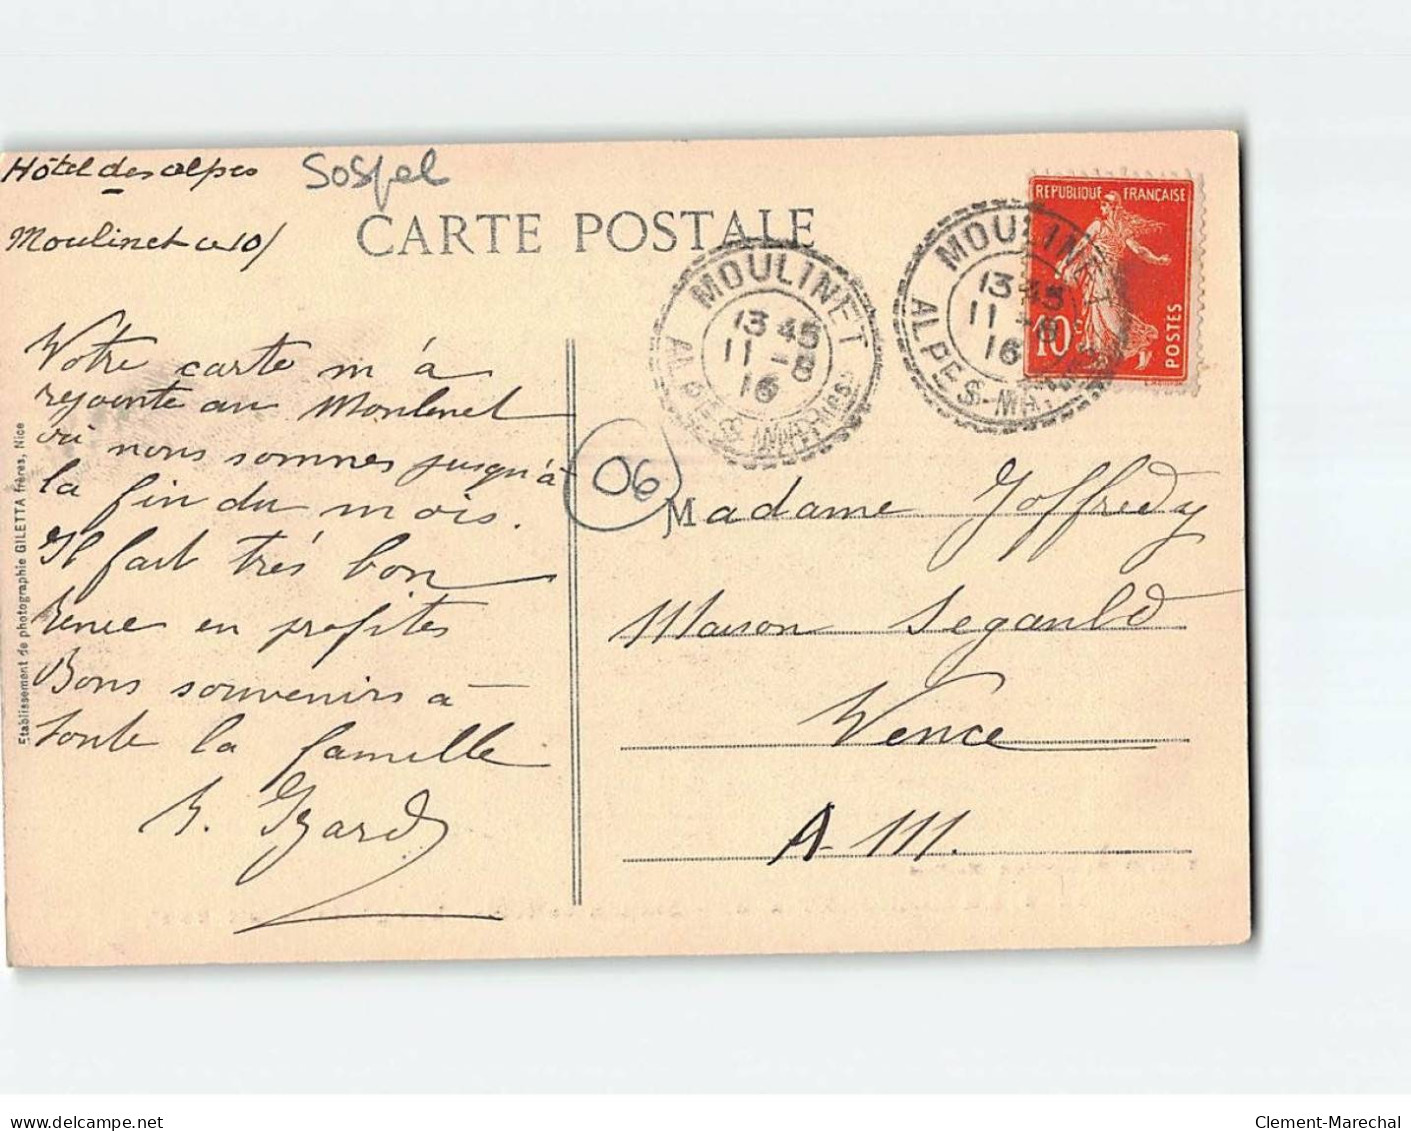 Hôtel des alpes
Sospel
Moulinet ce 10/
CARTE POSTALE
REPUBLIQUE FRANÇAISE
10c
POSTES
MOULINET
13 45
11 -8
16
ALPES-MARIT.mes
MOULINET
13 45
11 -8
16
ALPES-MAR
Votre carte m'a
rejointe au Moulinet
où nous sommes jusqu'à
la fin du mois.
Il fait très bon
Renée en profites
Bons souvenirs à
toute la famille
Izard
06
Madame Joffredy
Maison Segauld
Vence
A-M.
Etablissement de photographie GILETTA frères, Nice
delcampe.net
Clement-Marechal